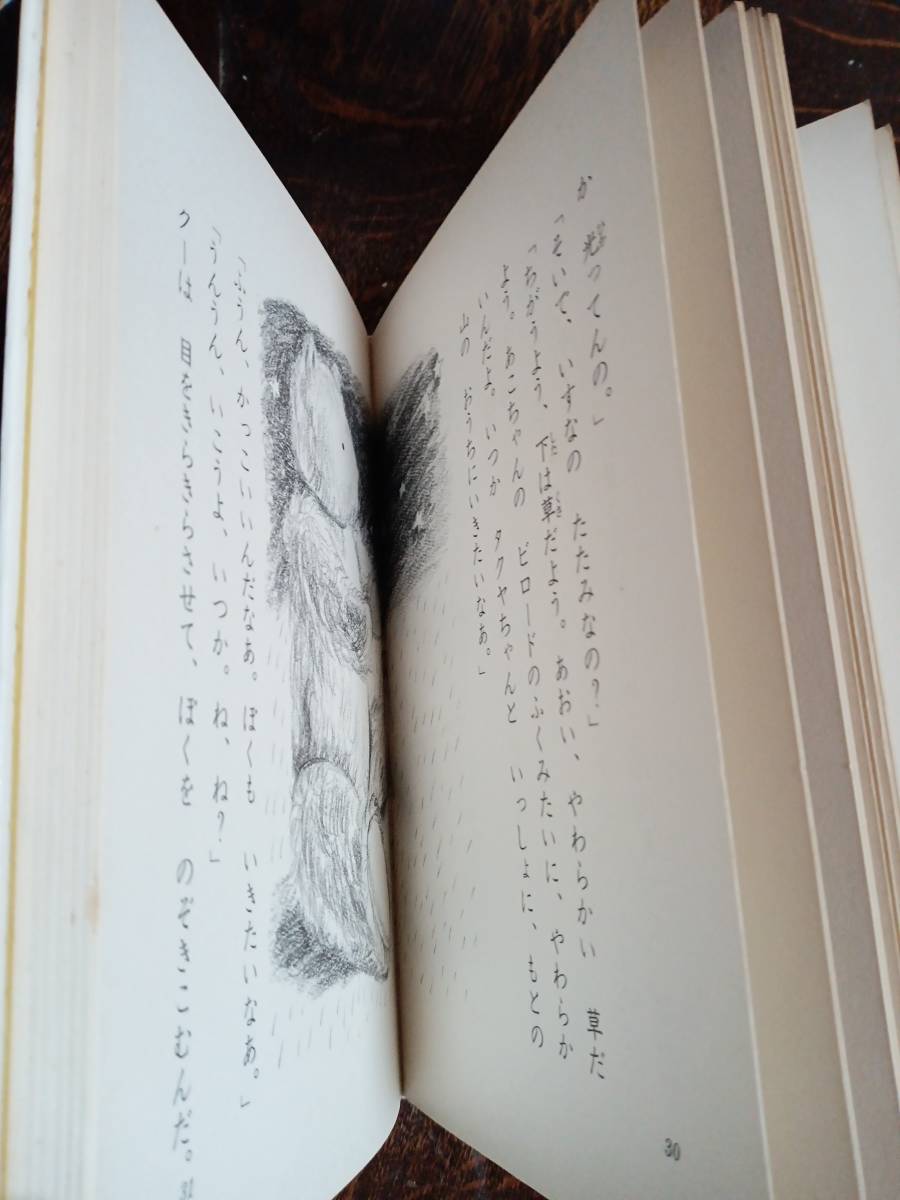 か 光ってんの。」
「そいで、いすなの たたみなの？」
「ちがうよう、下は草だよう。あおい、やわらかい 草だ
よう。あこちゃんの ビロードのふくみたいに、やわらか
いんだよ。いつか タクヤちゃんと いっしょに、もとの
山の おうちにいきたいなあ。」
30
「ふうん、かっこいいんだなあ。ぼくも いきたいなあ。」
「うんうん、いこうよ、いつか。ね、ね？」
クーは 目をきらきらさせて、ぼくを のぞきこむんだ。
31